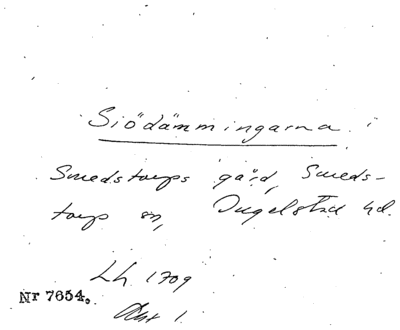 Siödämmingarna
Smedstorps gård, Smeds-
torp sn, Ingelstad hd.
Lh 1709
Nr 7654.
Akt 1.